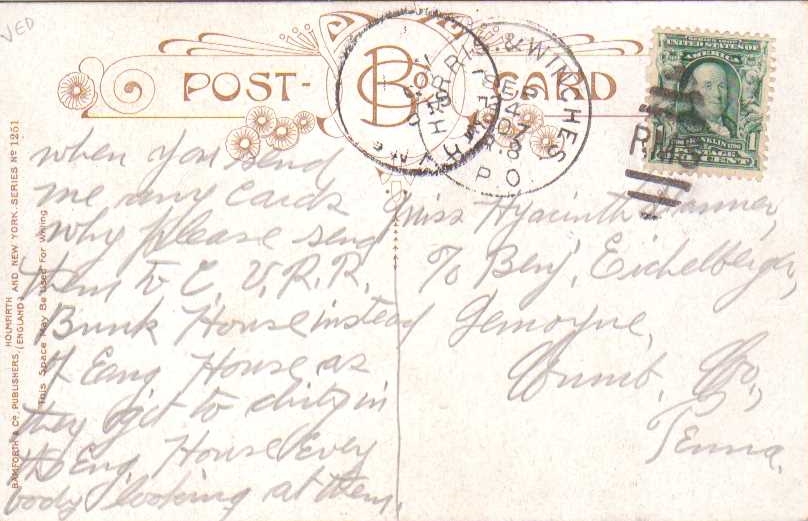 VED
POST- CARD
B Co
HARRI
& WINCHES
FEB
4
07
R.P.O.
UNITED STATES OF AMERICA
FRANKLIN
1 ONE CENT 1
HOLMFIRTH
(ENGLAND)
BAMFORTH & Co. PUBLISHERS, AND NEW YORK. SERIES No 1251
This Space May Be Used For Writing
when you send
me any cards
why please send
them to C. V. R. R.
Bunk House instead
of Eang House as
they get to dirty in
the Eng. House Every
body looking at them.
Miss Hyacinth
c/o Benj. Eichelberger,
Lemoyne,
Cumb. Co.,
Penna.